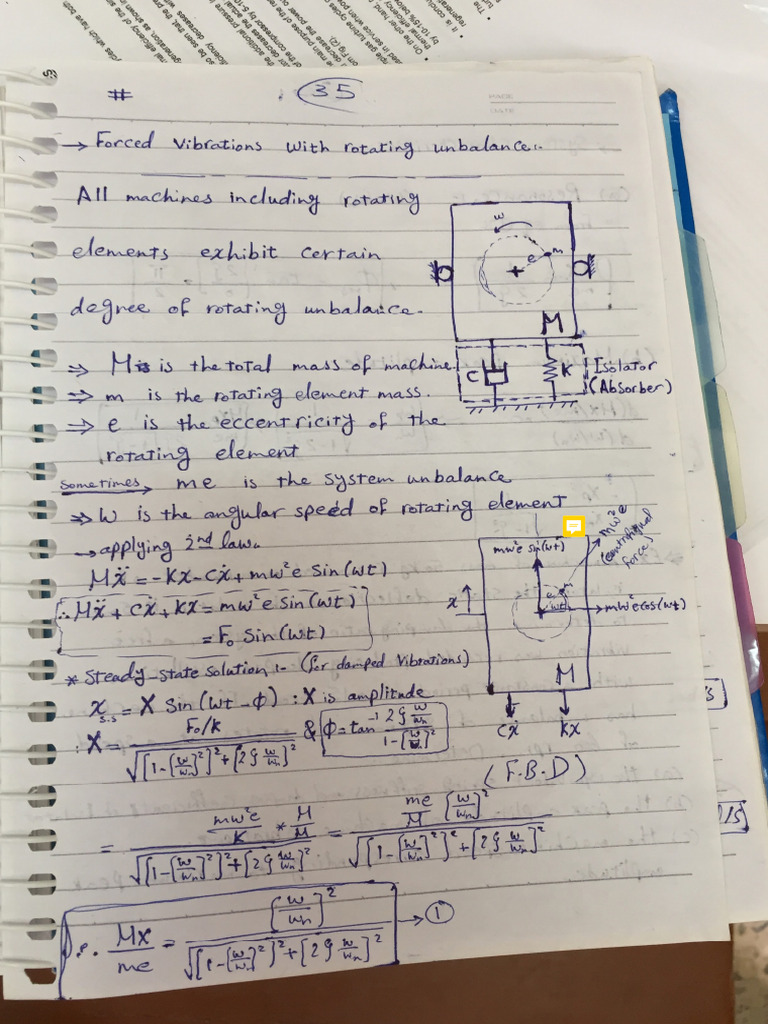 # 35
→ Forced Vibrations with rotating unbalance:-
All machines including rotating
elements exhibit certain
degree of rotating unbalance.
⇒ M is the total mass of machine
⇒ m is the rotating element mass.
⇒ e is the eccentricity of the
rotating element
Sometimes, me is the system unbalance
⇒ ω is the angular speed of rotating element
ω
e m
M
C K Isolator
(Absorber)
→ applying 2nd law.
Mẍ = -Kx - Cẋ + mω²e Sin(ωt)
∴ Mẍ + Cẋ + Kx = mω²e Sin(ωt)
= F₀ Sin(ωt)
mω²e sin(ωt)
mω²e
(centrifugal
force)
e m
ωt
mω²e cos(ωt)
x
M
Cẋ Kx
(F.B.D)
* Steady-state solution :- (for damped Vibrations)
x_s.s = X Sin(ωt - φ) : X is amplitude
: X = (F₀/K) / √([1-(ω/ωn)²]² + [2ζ ω/ωn]²) & φ = tan⁻¹ (2ζ ω/ωn) / (1-[ω/ωn]²)
= (mω²e/K * M/M) / √([1-(ω/ωn)²]² + [2ζ ω/ωn]²) = (me/M [ω/ωn]²) / √([1-(ω/ωn)²]² + [2ζ ω/ωn]²)
∴ MX/me = [ω/ωn]² / √([1-(ω/ωn)²]² + [2ζ ω/ωn]²) → ①